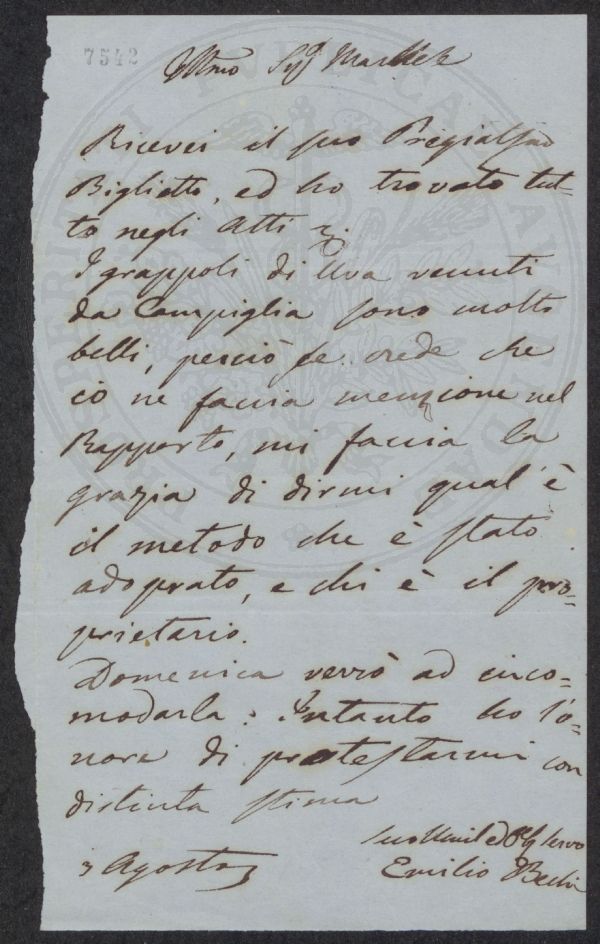 7542
Illmo Sigr
Ricevei il suo
Biglietto, ed ho trovato tut-
to negli Atti
I grappoli di Uva venuti
da Campiglia sono molto
belli, perciò se crede che
ciò ne faccia menzione nel
Rapporto, mi faccia la
grazia di dirmi qual'è
il metodo che è stato
adoprato, e chi è il pro-
prietario.
Domenica verrò ad inco-
modarla. Intanto ho l'o-
nore di protestarmi con
distinta stima
3 Agosto
Suo Umil ed Obb Servo
Emilio Bechi